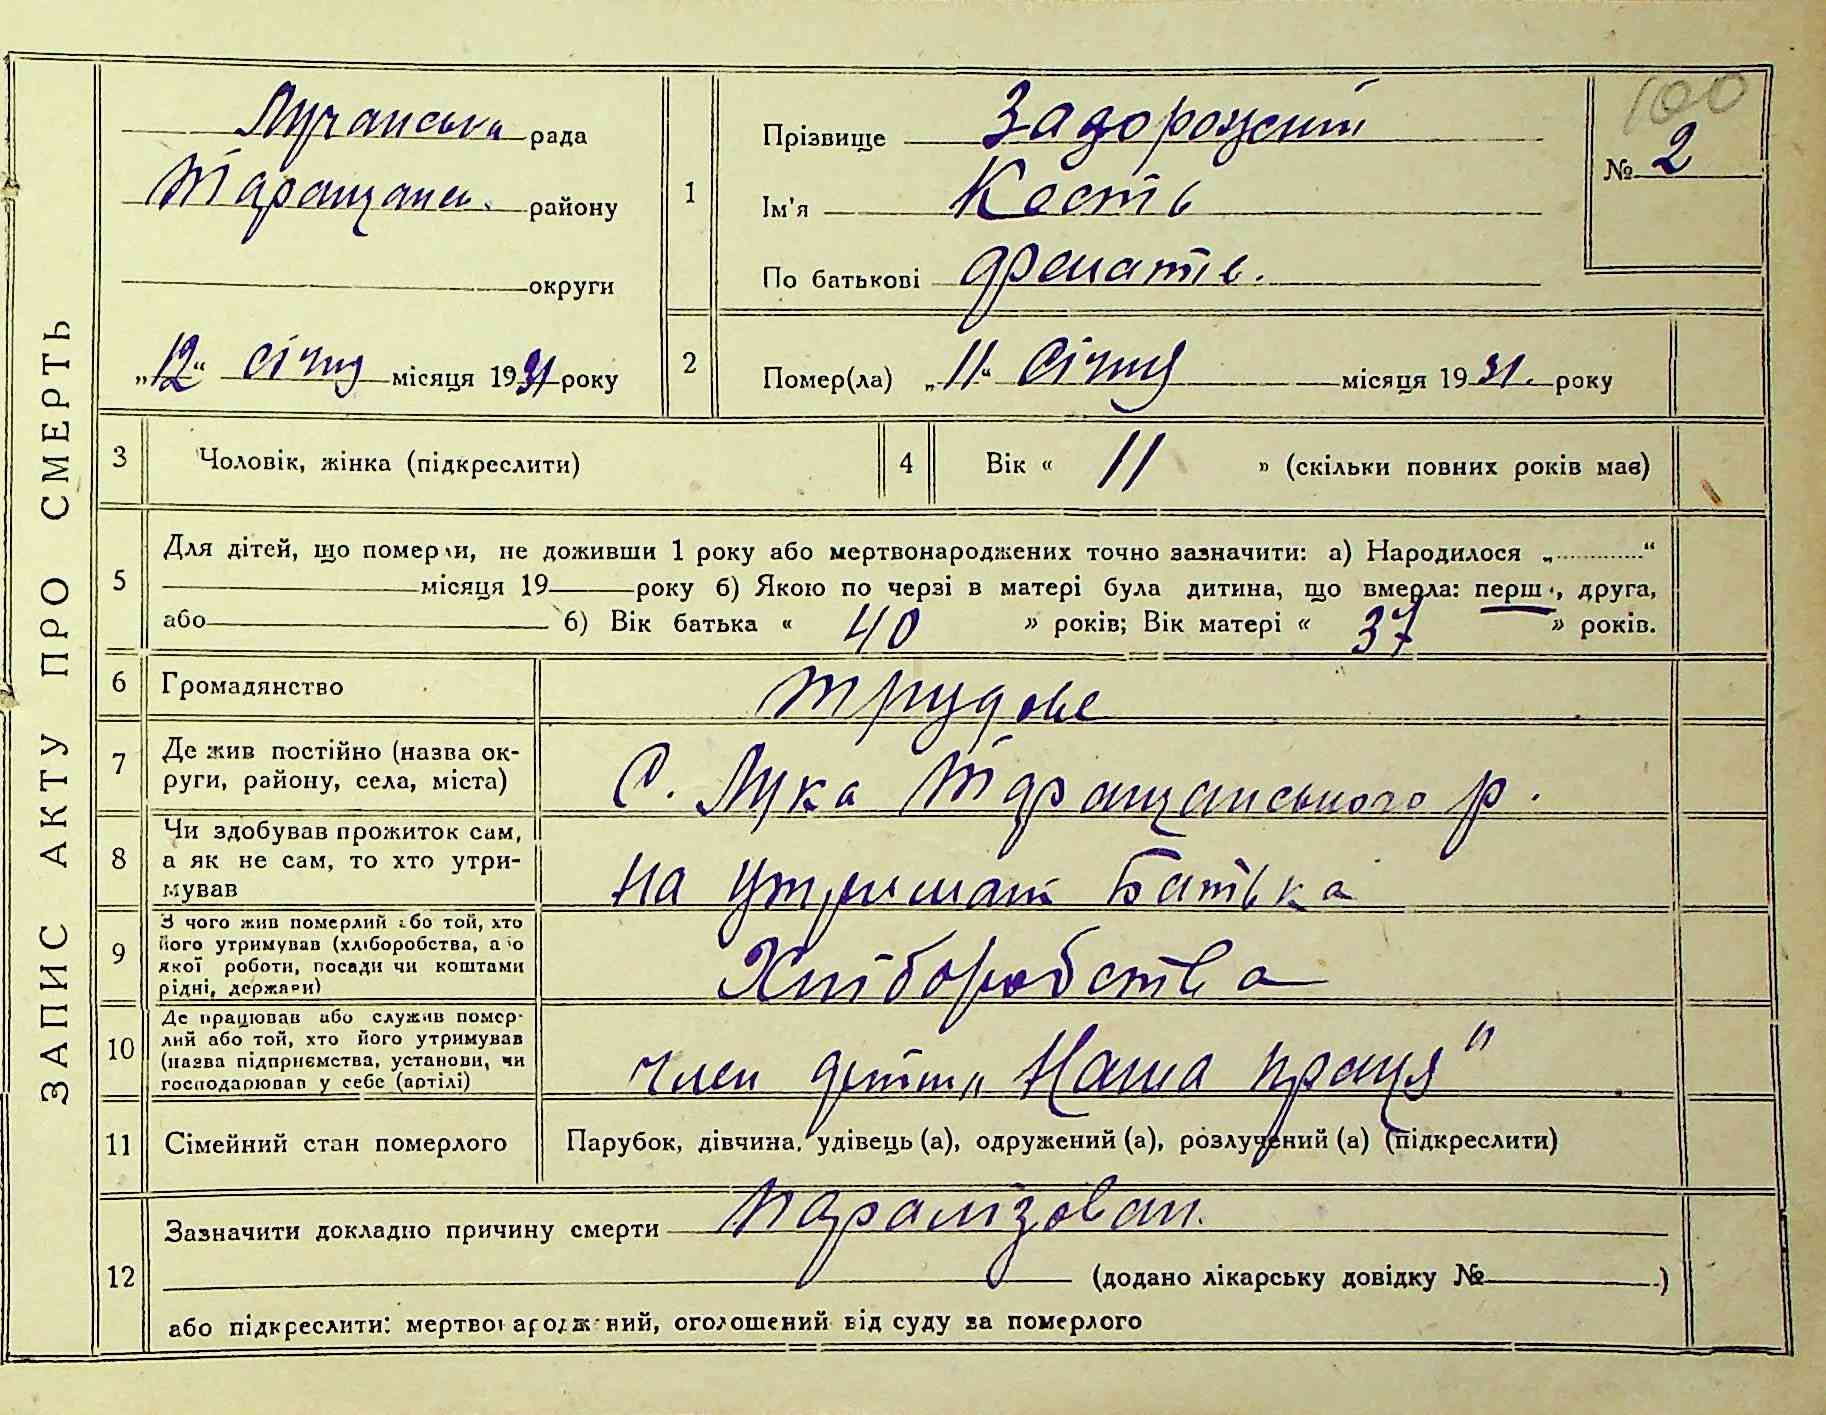 ЗАПИС АКТУ ПРО СМЕРТЬ
Лучанська рада
Таращанськ. району
округи
„12“ січня місяця 1931 року
100
№ 2
1
Прізвище Задорожній
Ім'я Кость
По батькові
2
Помер(ла) „11“ Січня місяця 1931. року
3 Чоловік, жінка (підкреслити)
4 Вік « 11 » (скільки повних років має)
5
Для дітей, що померли, не доживши 1 року або мертвонароджених точно зазначити: а) Народилося „ “
місяця 19 року б) Якою по черзі в матері була дитина, що вмерла: перша, друга,
або б) Вік батька « 40 » років; Вік матері « 37 » років.
6 Громадянство трудове
7 Де жив постійно (назва ок-
руги, району, села, міста)
С. Лука Таращанського р.
8 Чи здобував прожиток сам,
а як не сам, то хто утри-
мував
на утриман батька
9 З чого жив померлий або той, хто
його утримував (хліборобства, або
якої роботи, посади чи коштами
рідні, держави)
Хліборобства
10 Де працював або служив помер-
лий або той, хто його утримував
(назва підприємства, установи, чи
господарював у себе (артілі)
член „Наша праця"
11 Сімейний стан померлого Парубок, дівчина, удівець (а), одружений (а), розлучений (а) (підкреслити)
12
Зазначити докладно причину смерти Паралізован.
(додано лікарську довідку № )
або підкреслити: мертвонароджений, оголошений від суду за померлого